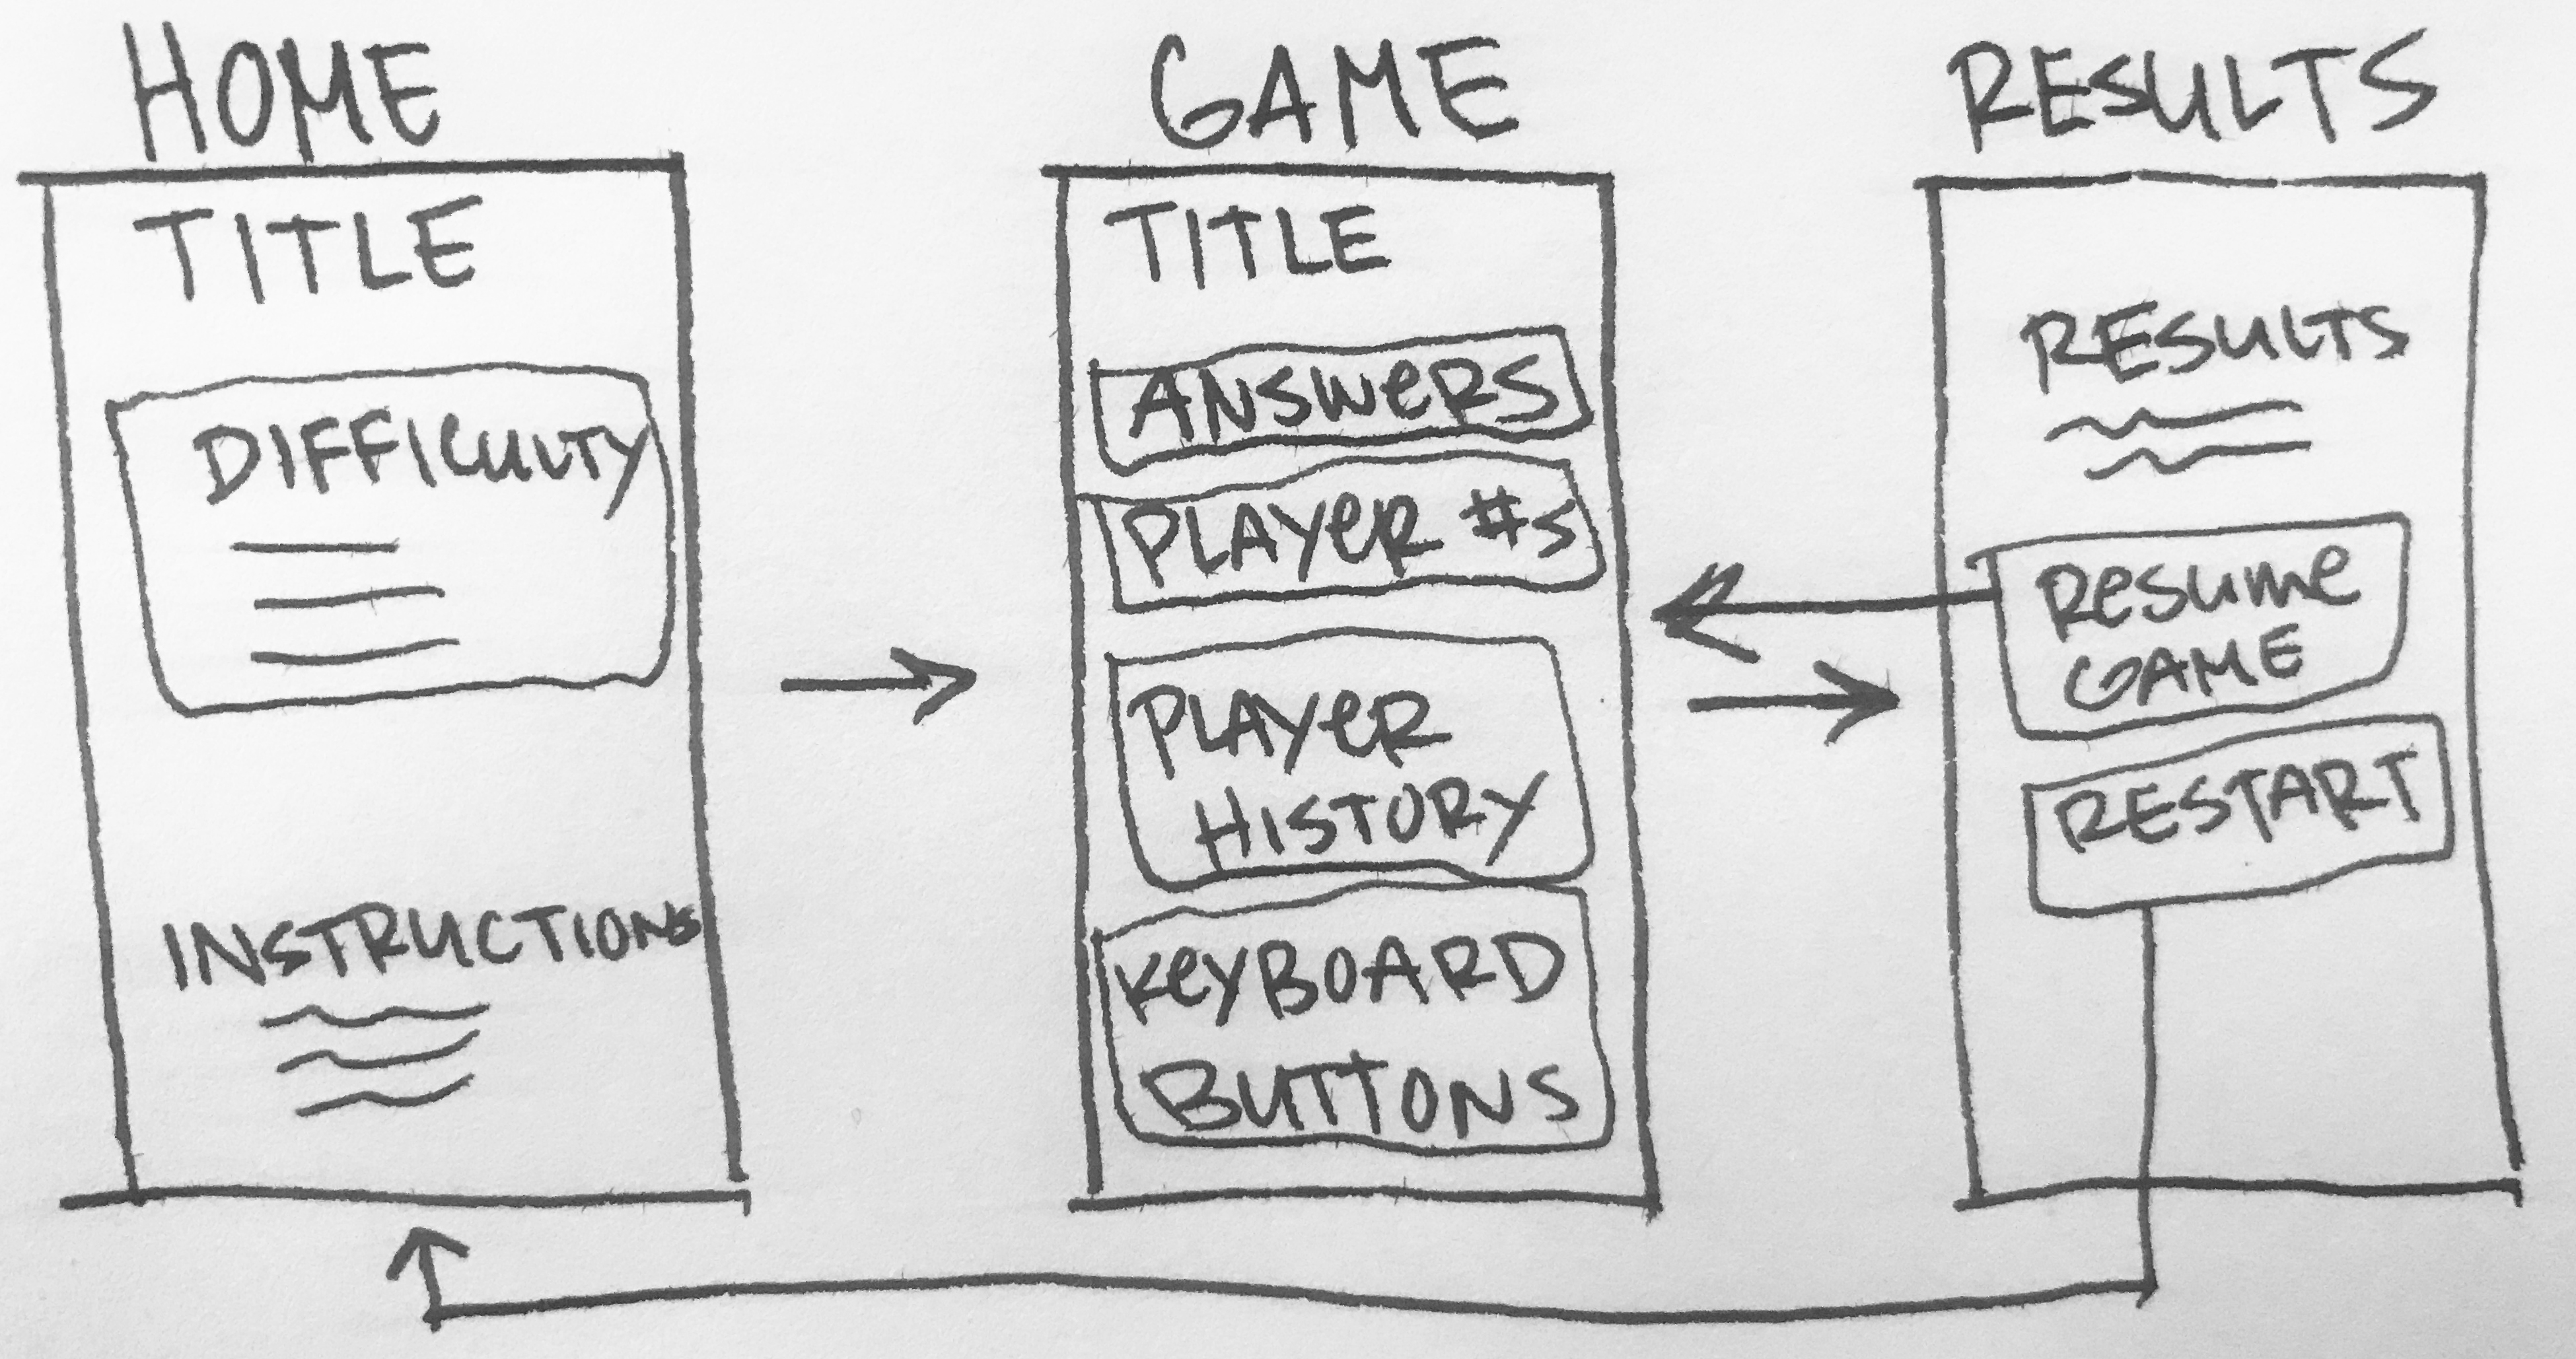 HOME
TITLE
DIFFICULTY
INSTRUCTIONS
GAME
TITLE
ANSWERS
PLAYER #S
PLAYER
HISTORY
KEYBOARD
BUTTONS
RESULTS
RESULTS
RESUME
GAME
RESTART